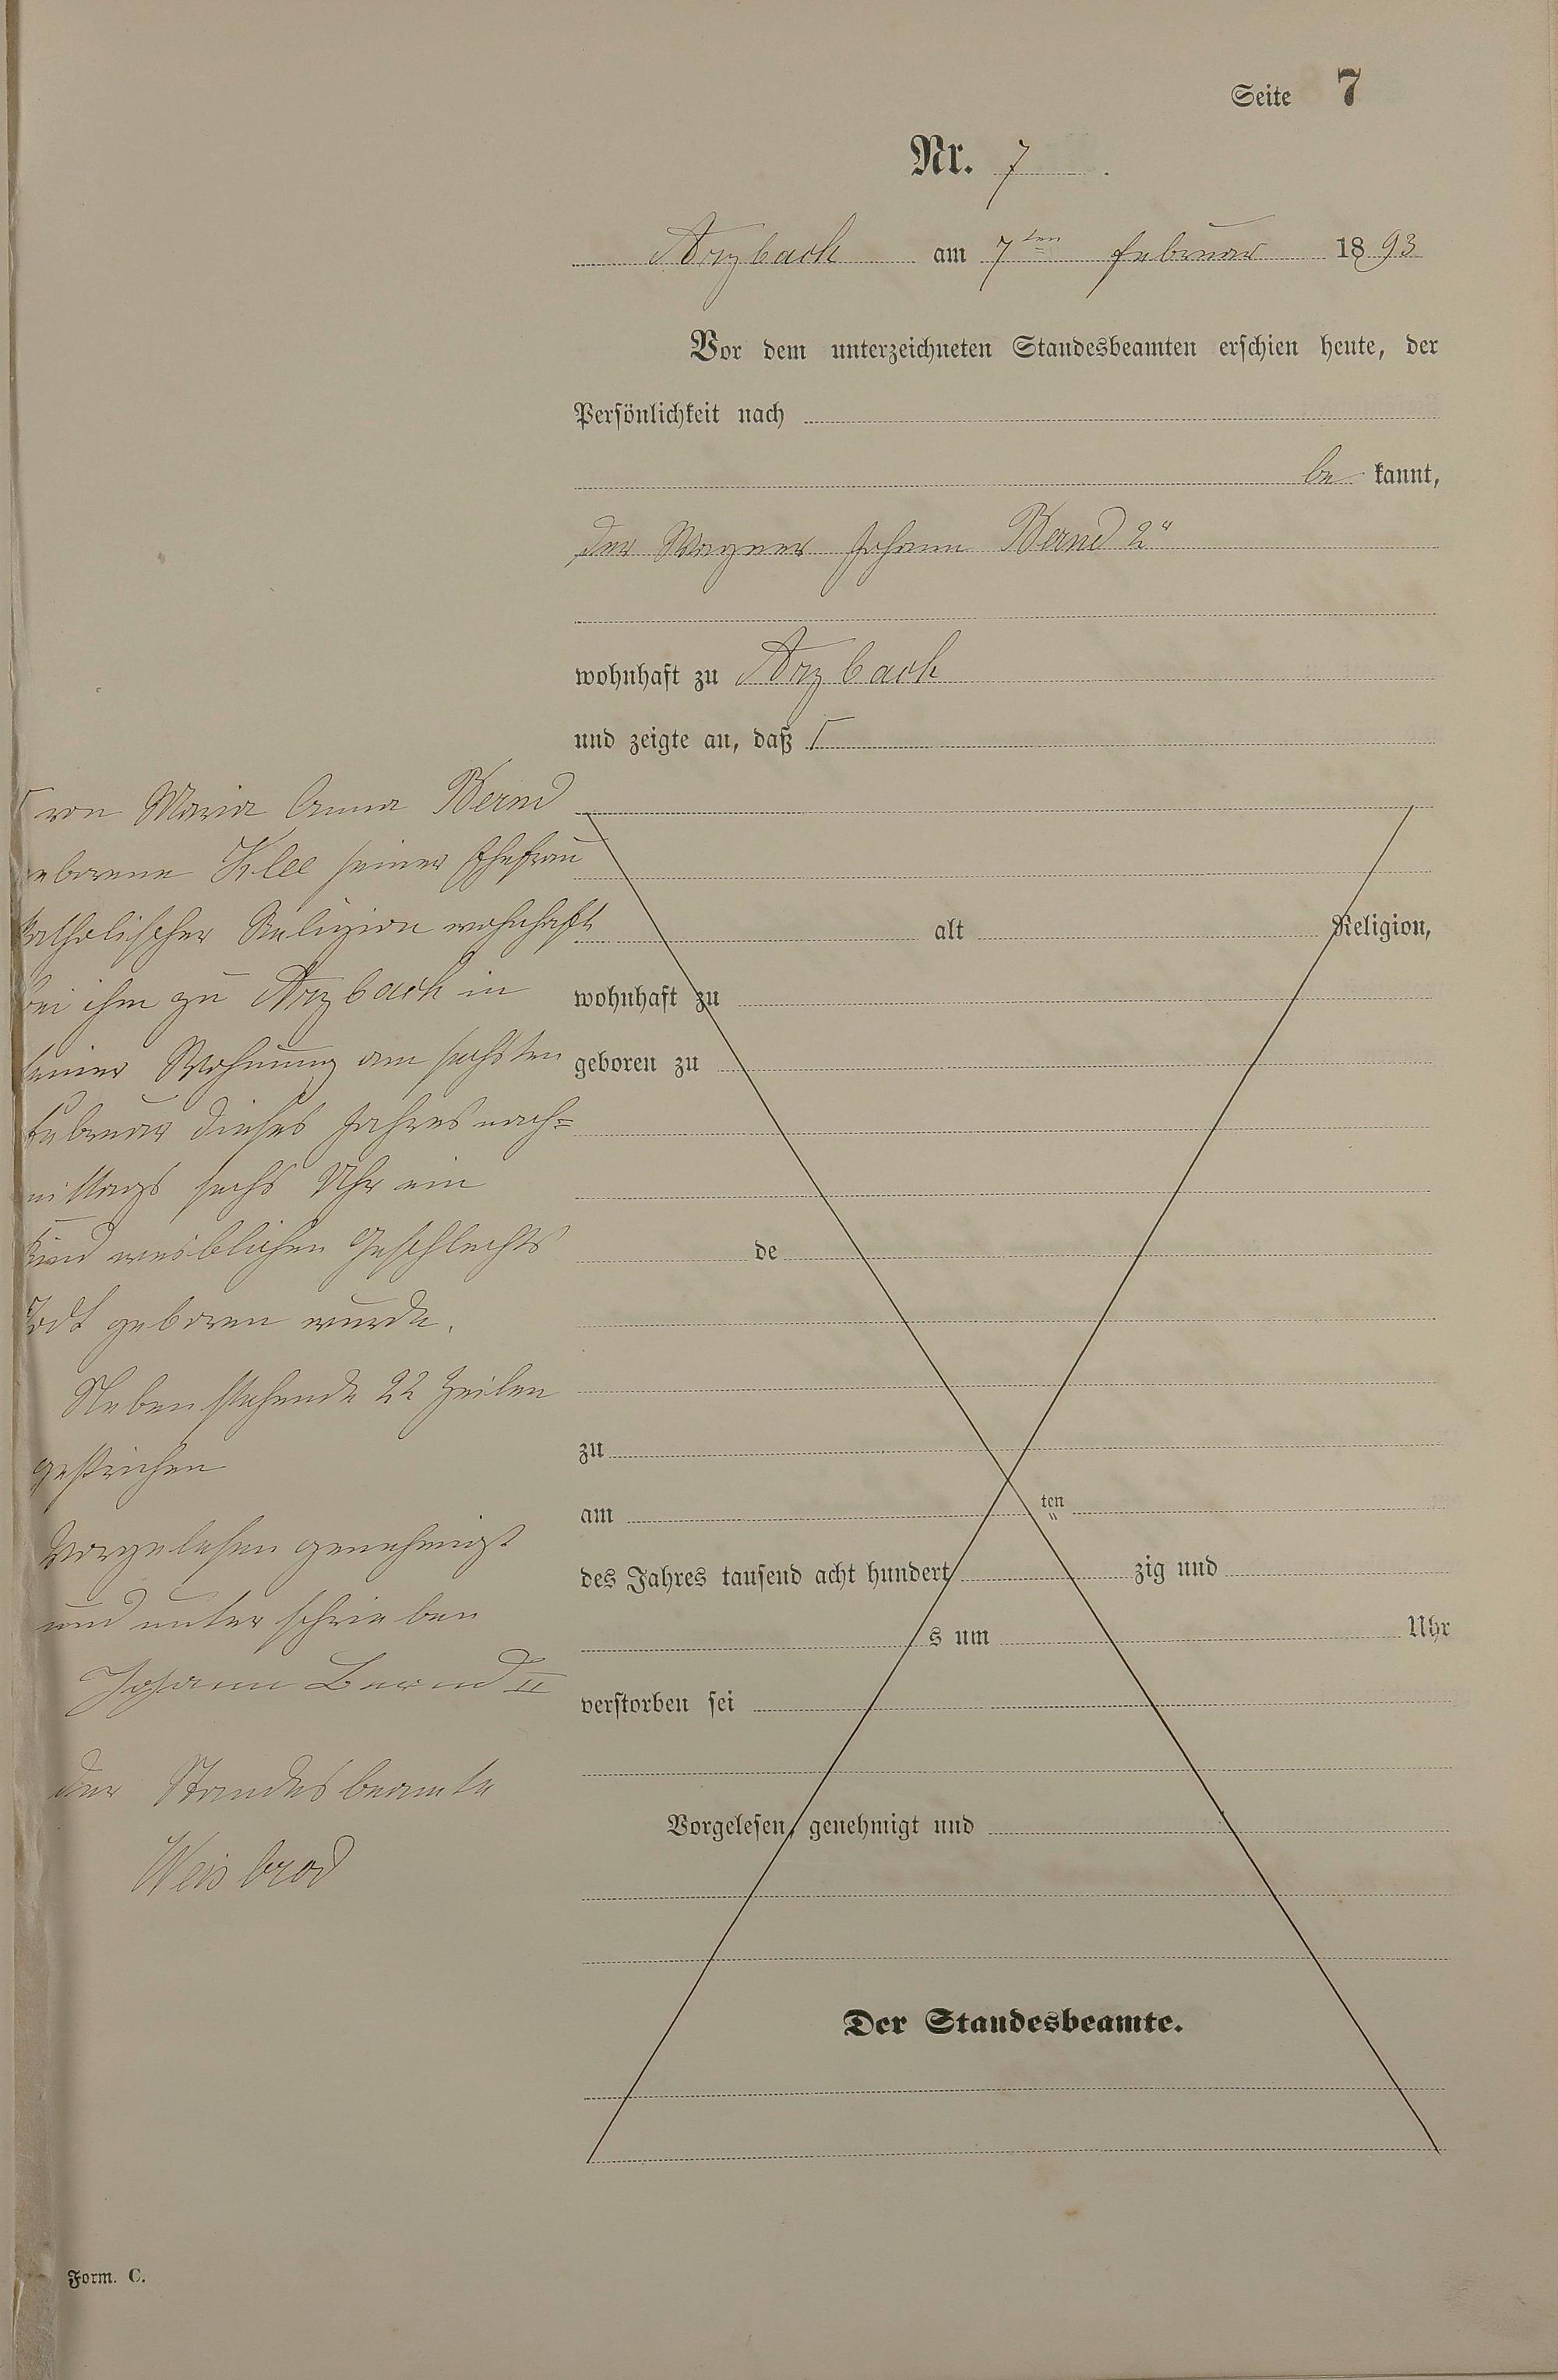 Seite 7
Nr. 7.
Arzbach am 7ten Februar 1893
Vor dem unterzeichneten Standesbeamten erschien heute, der
Persönlichkeit nach
bekannt,
der Wagner Johann Bernd 2"
wohnhaft zu Arzbach
und zeigte an, daß Γ
Γ von Maria Anna Bernd
eborene Klee seiner Ehefrau
katholischer Religion wohnhaft
bei ihm zu Arzbach in
seiner Wohnung am sechsten
Februar dieses Jahres nach=
mittags sechs Uhr ein
Kind weiblichen Geschlechts
Todt geboren wurde.
Nebenstehende 22 Zeilen
gestrichen
Vorgelesen genehmigt
und unterschrieben
Johann Bernd II
der Standesbeamte
Weisbrod
alt Religion,
wohnhaft zu
geboren zu
de
zu
am ten
des Jahres tausend acht hundert zig und
s um Uhr
verstorben sei
Vorgelesen, genehmigt und
Der Standesbeamte.
Form. C.